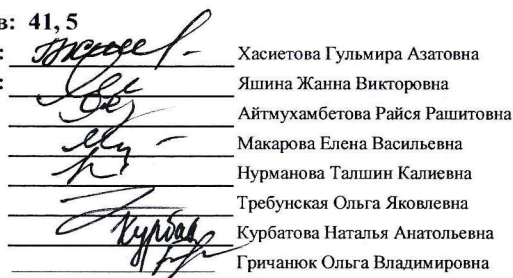 в: 41, 5
: Хасиетова Гульмира Азатовна
: Яшина Жанна Викторовна
Айтмухамбетова Райся Рашитовна
Макарова Елена Васильевна
Нурманова Талшин Калиевна
Требунская Ольга Яковлевна
Курбатова Наталья Анатольевна
Гричанюк Ольга Владимировна